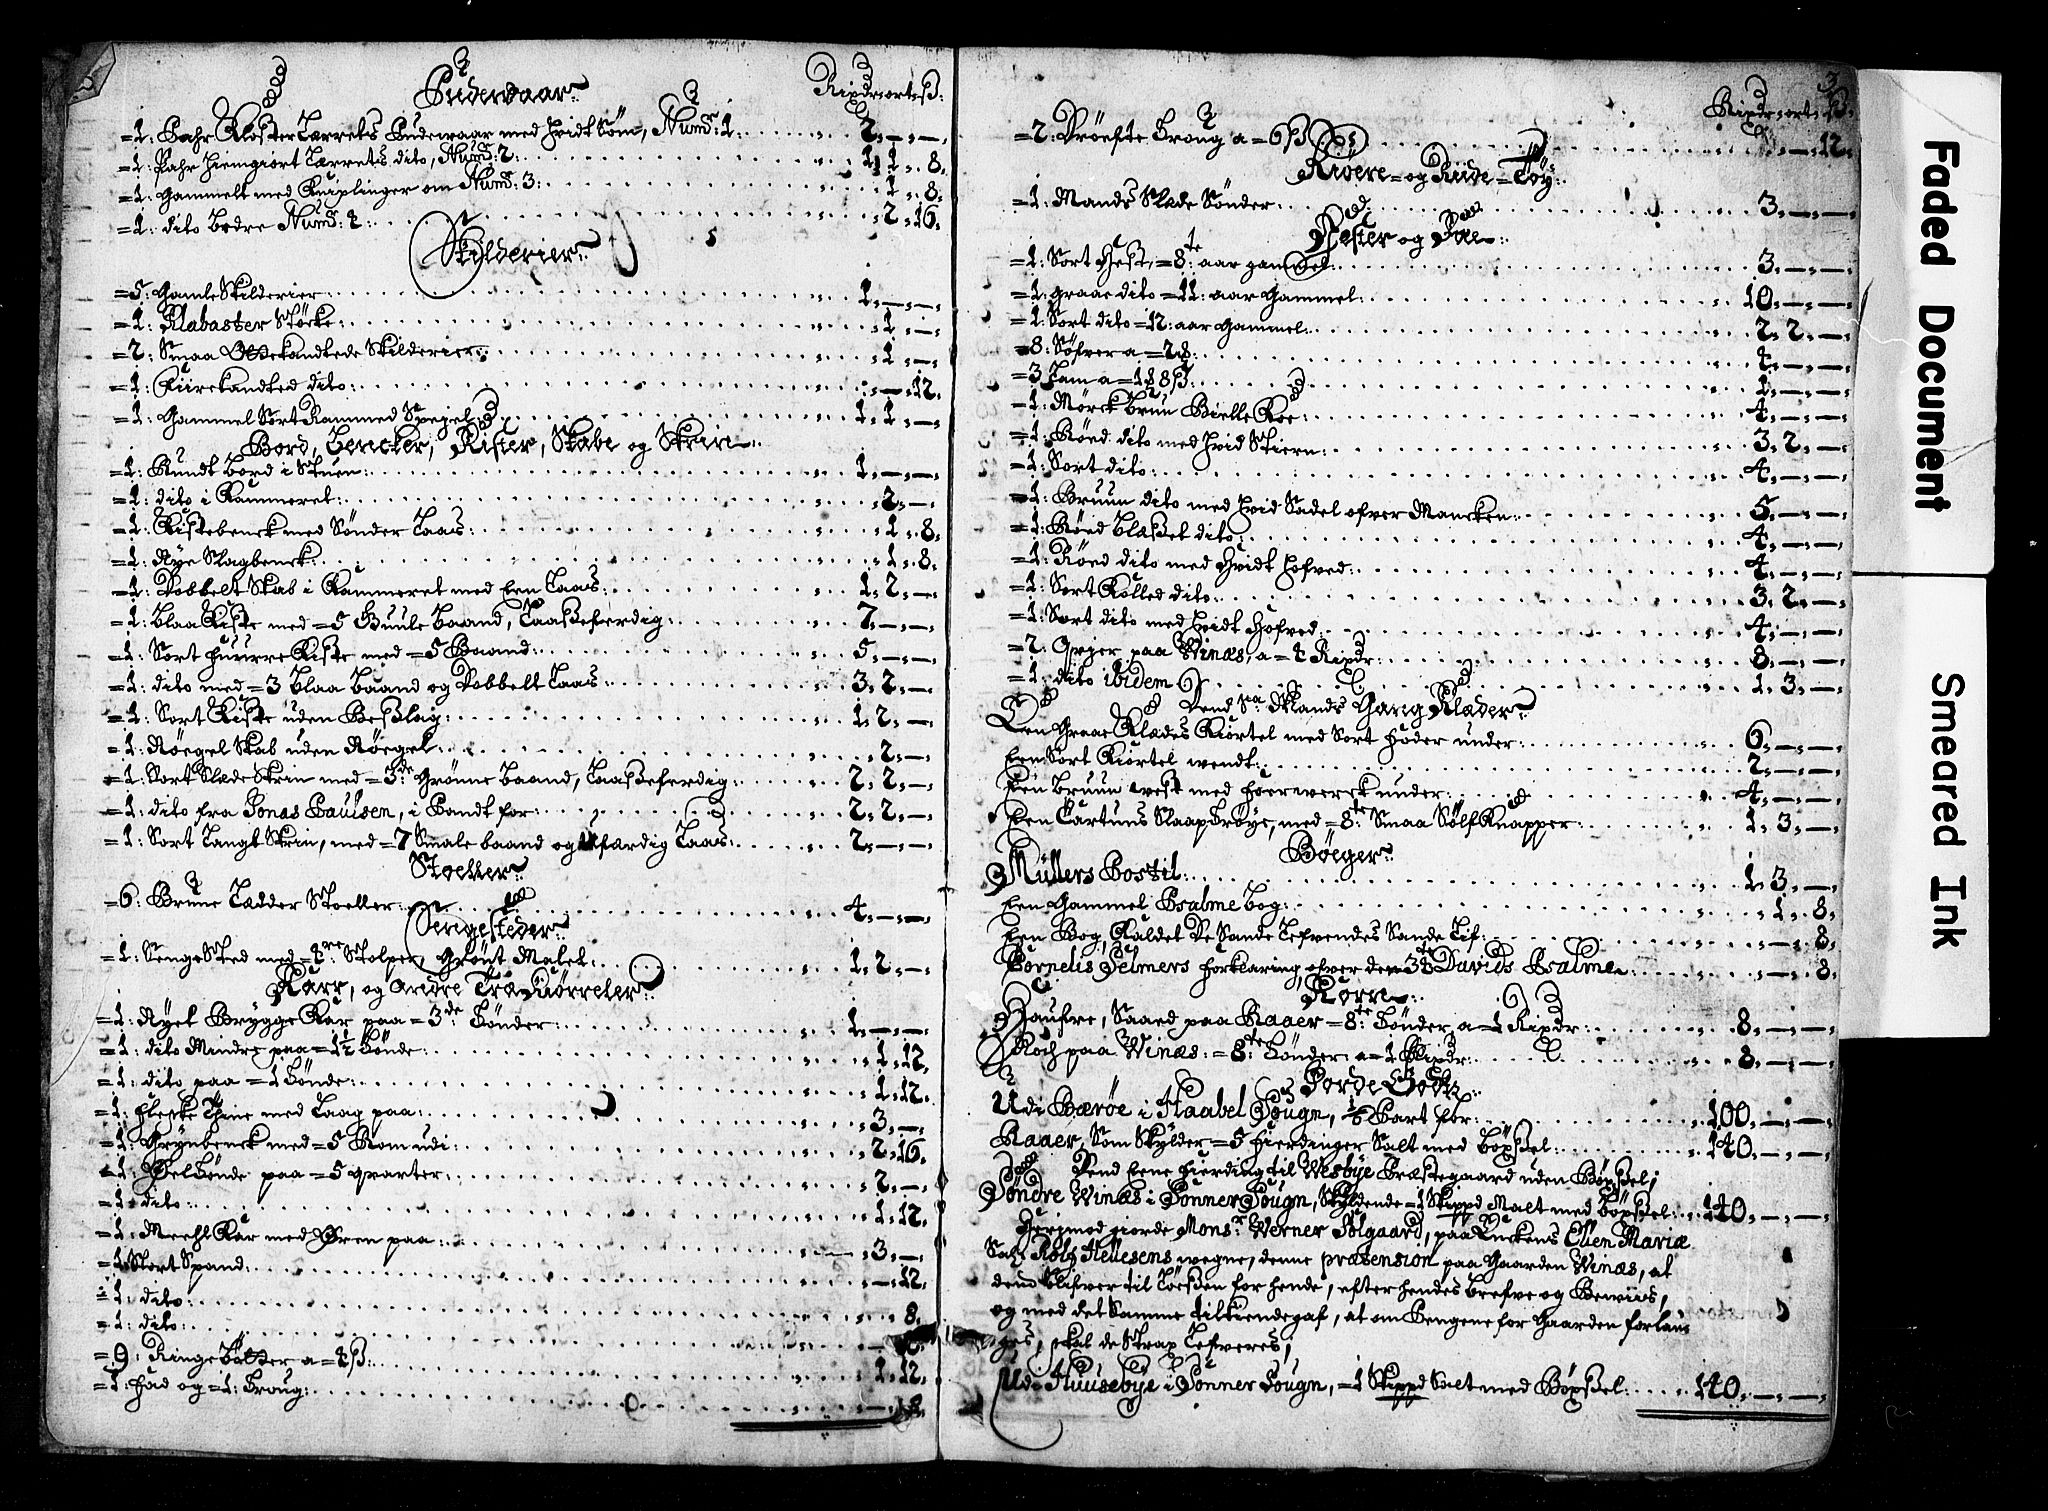 Pudevaar
Rixdr: ort: ß:
=1: Pahr Kloster Lærrets Pudevaar med hvidt Søm, Num: 1: 2. — —
=1: Pahr hiemgiort Lærrets dito, Num: 2: 1. 1. 8.
=1: Gammelt med Kniplinger om Num: 3: 1. 8.
=1: dito bedre Num: 4: 2. 16.
Skilderier
=5: Gamle Skilderier: 1. — —
=1: Alabaster Støcke: 1. —
=2: Smaa Ottekandtede Skilderier: 1. —
=1: Fiirekandted dito: — 12.
=1: Gammel Sort Rammed Speyel: 1. 1. —
Bord, Bencker, Kister, Skabe og Skrin
=1: Rundt bord i Stuen: 1. — —
=1: dito i Kammeret: 2. —
=1: Kistebenck med Sønder Laas: 1. 8.
=1: Nye Slagbenck: 1. 8.
=1: Dobbelt Skab i Kammeret med Een Laas: 1. 2. —
=1: blaa Kiste med =5 Guule baand, Laaßeferdig: 7. — —
=1: Sort Fuurre Kiste med =5 Baand: 5. — —
=1: dito med =3 blaa baand og Dobbelt Laas: 3. 2. —
=1: Sort Kiste uden Beßlag: 1. 2. —
=1: Nøegel Skab uden Nøegel: 2. —
=1: Sort Slæde Skrin med =3de Grønne baand, Laaßeferdig: 2. 2. —
=1: dito fra Jonas Paulsen, i Pandt for: 2. 2. —
=1: Sort Langt Skrin, med =7 Smale baand og Ufærdig Laas: 2. — —
Stoeller
=6: Brune Lædder Stoeller: 4. — —
Sengesteder
=1: SengeSted med =4re Stolper, Grønt Malet: 1. 2. —
Karr, og andre Træ Kiørreler
=1: Nyet Brygge Kar paa =3de Tønder: 1. — —
=1: dito Mindre paa =1½ Tønde: 1. 12.
=1: dito paa =1 Tønde: 1. 12.
=1: Fleske Tiine med Laag paa: 3. —
=1: Grynbenck med =5 Rom udi: 2. 16.
=1: Øeltønde paa =5 qvarter: 2. —
=1: dito: 1. 12.
=1: Meehl Kar med Øren paa: 3. —
=1: Stort Spand: — 12.
=1: dito: 8.
=1: dito:
=9: Ringe bøtter a =4 ß: 1. 12.
=1: Fad og =1: Troug:
3
Rixdr: ort: ß:
=2: Drøefte Troug a =6 ß: — 12.
Kiøre= og Riide=Tøy
=1: Mands Slæde Sønder: 3. — —
Hester og Fæ
=1: Sort Hest, =8te aar gammel: 3. — —
=1: graae dito =11: aar Gammel: 10. — —
=1: Sort dito =12: aar Gammel: 2. 2. —
=8: Søfver a =2 4. — —
=3 Lam a =1 8 ß: 1. — —
=1: Mørck brun Bielle Koe: 4. — —
=1: Røed dito med hvid Stiern: 3. 2. —
=1: Sort dito: 4. — —
=1: Bruun dito med hvid Sadel ofver Mancken: 5. — —
=1: Røed blaßet dito: 4. — —
=1: Røed dito med hvidt hofved: 4. — —
=1: Sort Kolled dito: 3. 2. —
=1: Sort dito med hvidt Hofved: 4. — —
=2: Qviger paa Winæs, a =4 Rixdr: 8. — —
=1: dito ibidem 1. 3. —
Dend Sa: Mands Gang Klæder
Een Graae Klædes Kiortel med Sort Foder under: 6. — —
Een Sort Kiortel vendt: 2. — —
Een bruun vest med Foerverck under: 4. — —
Een Cartuns Slaaptrøye, med =8te Smaa Sølf Knapper: 1. 3. —
Bøeger
Müllers Postil: 1. 3. —
Een Gammel Psalme bog: 1. 8.
Een Bog, Kaldet De Sande Lefvendes Sande Lif: — 8.
Cornelis Pelmers Forklaring ofver den 3de Davids Psalme: — 8.
Korn
Haufre, Saaed paa Raaer =8te Tønder a =1 Rixdr: 8. — —
Noch paa Winæs: =8te Tønder a =1 Rixdr: 8. — —
Jorde Gods
Udi Bærøe i Haabel Sougn, ½ Part for: 100. — —
Raaer, Som Skylder =5 Fierdinger Salt med böxßel: 140. — —
Dend Eene Fierding til Westbye Præstegaard uden Böxßel;
Søndre Winæs i Sonner Sougn, Skyldende =1 Skippd Malt med böxßel: 140. — —
Herjmod giorde Monsr Werner Sølgaard, paa Enckens Ellen Mariæ
Sal: Rolf Hellesens vegne, denne prætension paa Gaarden Winæs, at
dend blifver til Loeßen for hende, efter hendes brefve og Beviis,
og med det Samme tilkiendegaf, at om Pengene for Gaarden forlan
ges, skal de Strax Lefveres;
Udi Huusebye i Sonner Sougn, =1 Skippd Salt med Böxßel: 140. — —
Faded Document
Smeared Ink